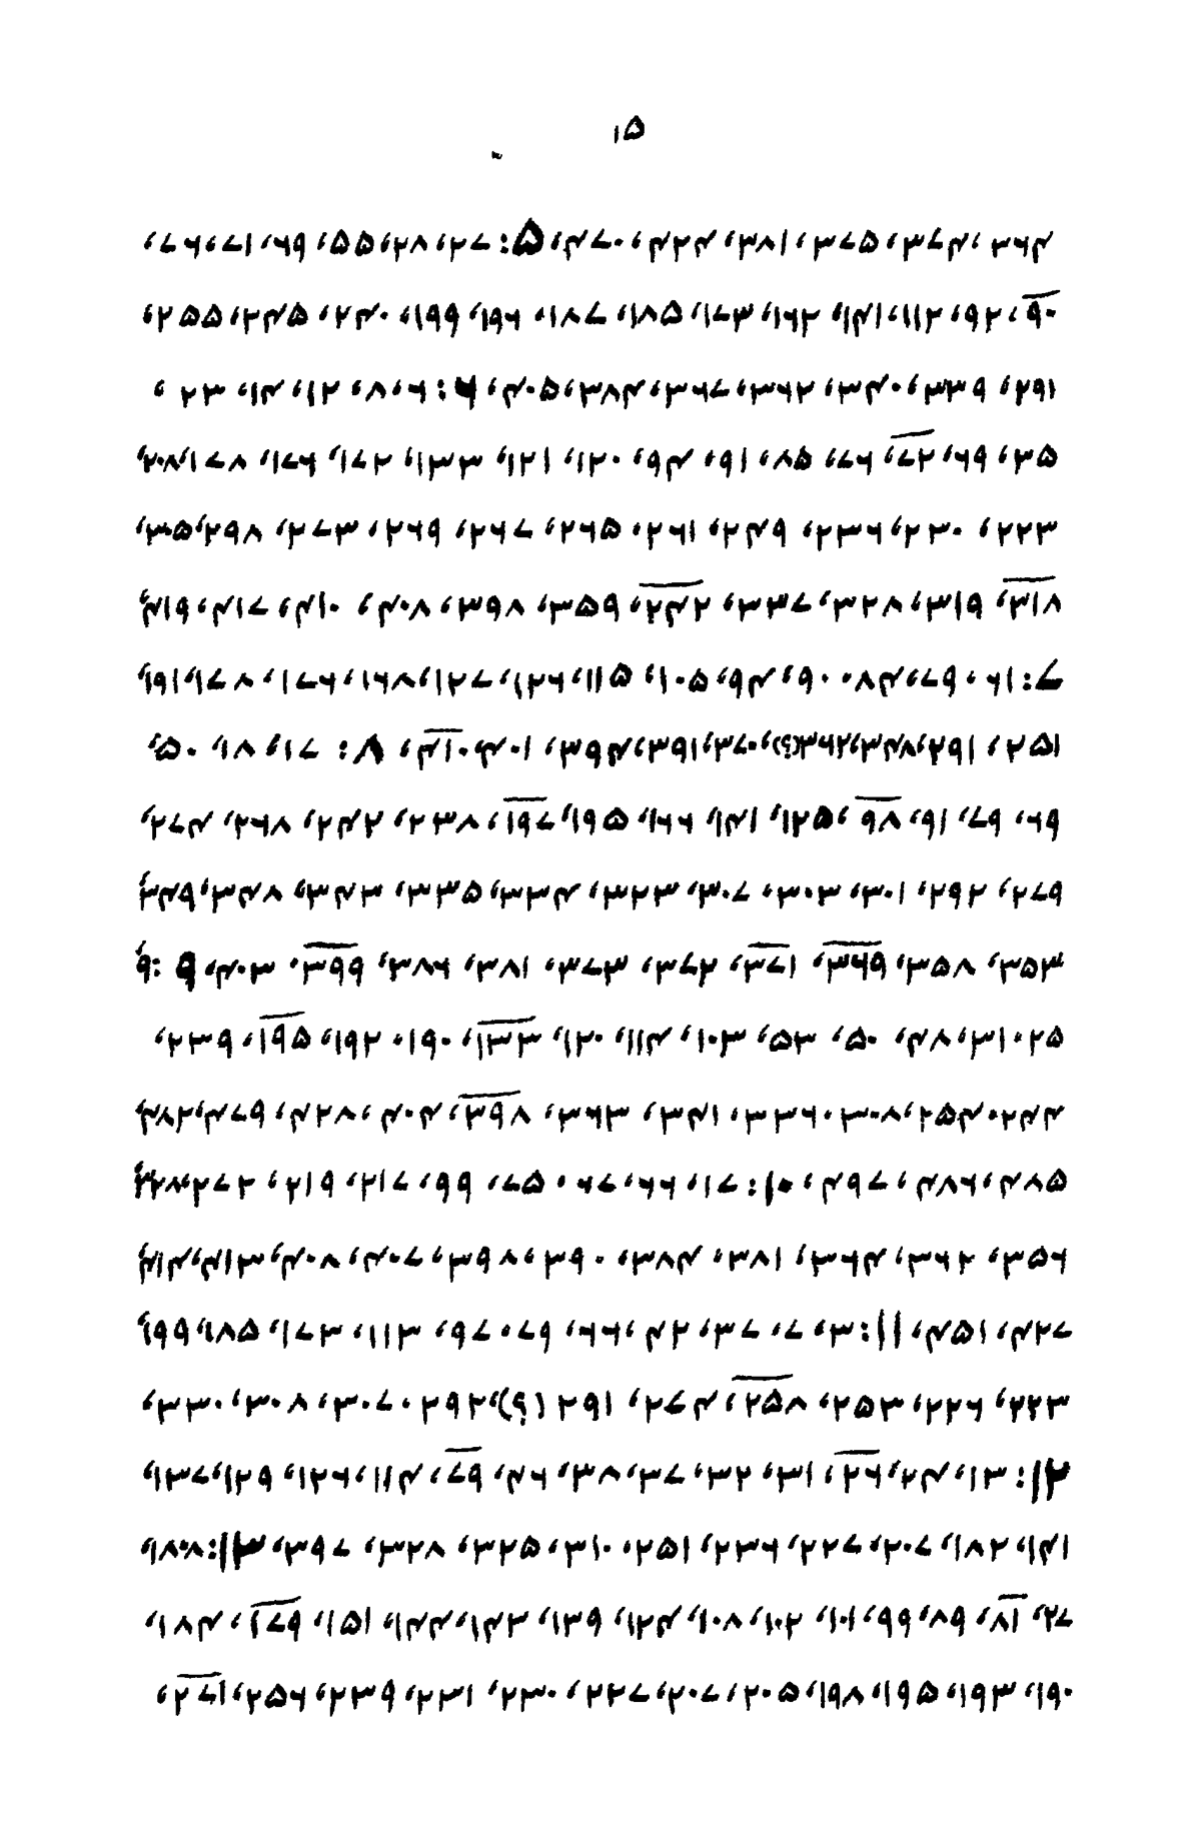 ۱۵
۳۶۴، ۳۷۴، ۳۷۵، ۳۸۱، ۴۲۴، ۴۷۰، ۵: ۲۷، ۲۸، ۵۵، ۶۹، ۷۱، ۷۶،
۹۰، ۹۲، ۱۱۲، ۱۴۱، ۱۶۲، ۱۷۳، ۱۸۵، ۱۸۷، ۱۹۶، ۱۹۹، ۲۴۰، ۲۴۵، ۲۵۵،
۲۹۱، ۳۳۹، ۳۴۰، ۳۶۲، ۳۶۷، ۳۸۴، ۴۰۵، ۶: ۶، ۸، ۱۲، ۱۴، ۲۳،
۳۵، ۶۹، ۷۲، ۷۶، ۸۵، ۹۱، ۹۴، ۱۲۰، ۱۲۱، ۱۳۳، ۱۷۲، ۱۷۶، ۱۷۸، ۲۰۸،
۲۲۳، ۲۳۰، ۲۳۶، ۲۴۹، ۲۶۱، ۲۶۵، ۲۶۷، ۲۶۹، ۲۷۳، ۲۹۸، ۳۵،
۳۱۸، ۳۱۹، ۳۲۸، ۳۳۷، ۲۴۲، ۳۵۹، ۳۹۸، ۴۰۸، ۴۱۰، ۴۱۷، ۴۱۹،
۷: ۱۶، ۷۹، ۴۸، ۹۰، ۹۴، ۱۰۵، ۱۱۵، ۱۲۶، ۱۲۷، ۱۶۸، ۱۷۶، ۱۷۸، ۱۹۱،
۲۵۱، ۲۹۱، ۳۴۸، ۳۶۲(؟)، ۳۷۰، ۳۹۱، ۳۹۴، ۴۰۱، ۴۱۰، ۸: ۱۷، ۱۸، ۵۰،
۶۹، ۷۹، ۹۱، ۹۸، ۱۲۵، ۱۴۱، ۱۶۶، ۱۹۵، ۱۹۷، ۲۳۸، ۲۴۲، ۲۶۸، ۲۷۴،
۲۷۹، ۲۹۲، ۳۰۱، ۳۰۳، ۳۰۷، ۳۲۳، ۳۳۴، ۳۳۵، ۳۴۳، ۳۴۸، ۳۴۹،
۳۵۳، ۳۵۸، ۳۶۹، ۳۷۱، ۳۷۲، ۳۷۳، ۳۸۱، ۳۸۶، ۳۹۹، ۴۰۳، ۹: ۹،
۲۵، ۳۱، ۴۸، ۵۰، ۵۳، ۱۰۳، ۱۱۴، ۱۲۰، ۱۳۳، ۱۹۰، ۱۹۲، ۱۹۵، ۲۳۹،
۲۴۴، ۲۵۴، ۳۰۸، ۳۳۶، ۳۴۱، ۳۶۳، ۳۹۸، ۴۰۴، ۴۲۸، ۴۷۹، ۴۸۲،
۴۸۵، ۴۸۶، ۴۹۷، ۱۰: ۱۷، ۶۶، ۷۶، ۷۵، ۹۹، ۲۱۷، ۲۱۹، ۲۷۲،
۳۵۶، ۳۶۲، ۳۶۴، ۳۸۱، ۳۸۴، ۳۹۰، ۳۹۸، ۴۰۷، ۴۰۸، ۴۱۳، ۴۱۴،
۴۲۷، ۴۵۱، ۱۱: ۳، ۷، ۳۷، ۴۲، ۶۶، ۷۹، ۹۷، ۱۱۳، ۱۷۳، ۱۸۵، ۱۹۹،
۲۲۳، ۲۲۶، ۲۵۳، ۲۵۸، ۲۶۴، ۲۹۱ (؟)، ۲۹۲، ۳۰۷، ۳۰۸، ۳۳۰،
۱۲: ۱۳، ۲۴، ۲۶، ۳۱، ۳۲، ۳۷، ۳۸، ۴۶، ۷۹، ۱۱۴، ۱۲۶، ۱۲۹، ۱۳۷،
۱۴۱، ۱۸۲، ۲۰۷، ۲۲۷، ۲۳۶، ۲۵۱، ۳۱۰، ۳۲۵، ۳۲۸، ۳۹۷، ۱۳: ۸، ۱۸،
۲۷، ۸۱، ۸۹، ۹۹، ۱۰۱، ۱۰۲، ۱۰۸، ۱۲۴، ۱۳۹، ۱۴۲، ۱۴۴، ۱۵۱، ۱۷۹، ۱۸۴،
۱۹۰، ۱۹۳، ۱۹۵، ۱۹۸، ۲۰۵، ۲۰۷، ۲۲۷، ۲۳۰، ۲۳۱، ۲۳۹، ۲۵۶، ۲۷۱،